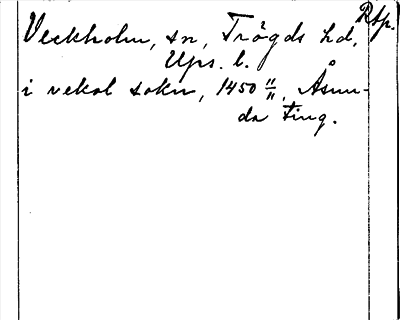 Rtp.
Veckholm, sn, Trögds hd,
Ups. l.
i vekol sokn, 1450 11/11, Åsun-
da ting.